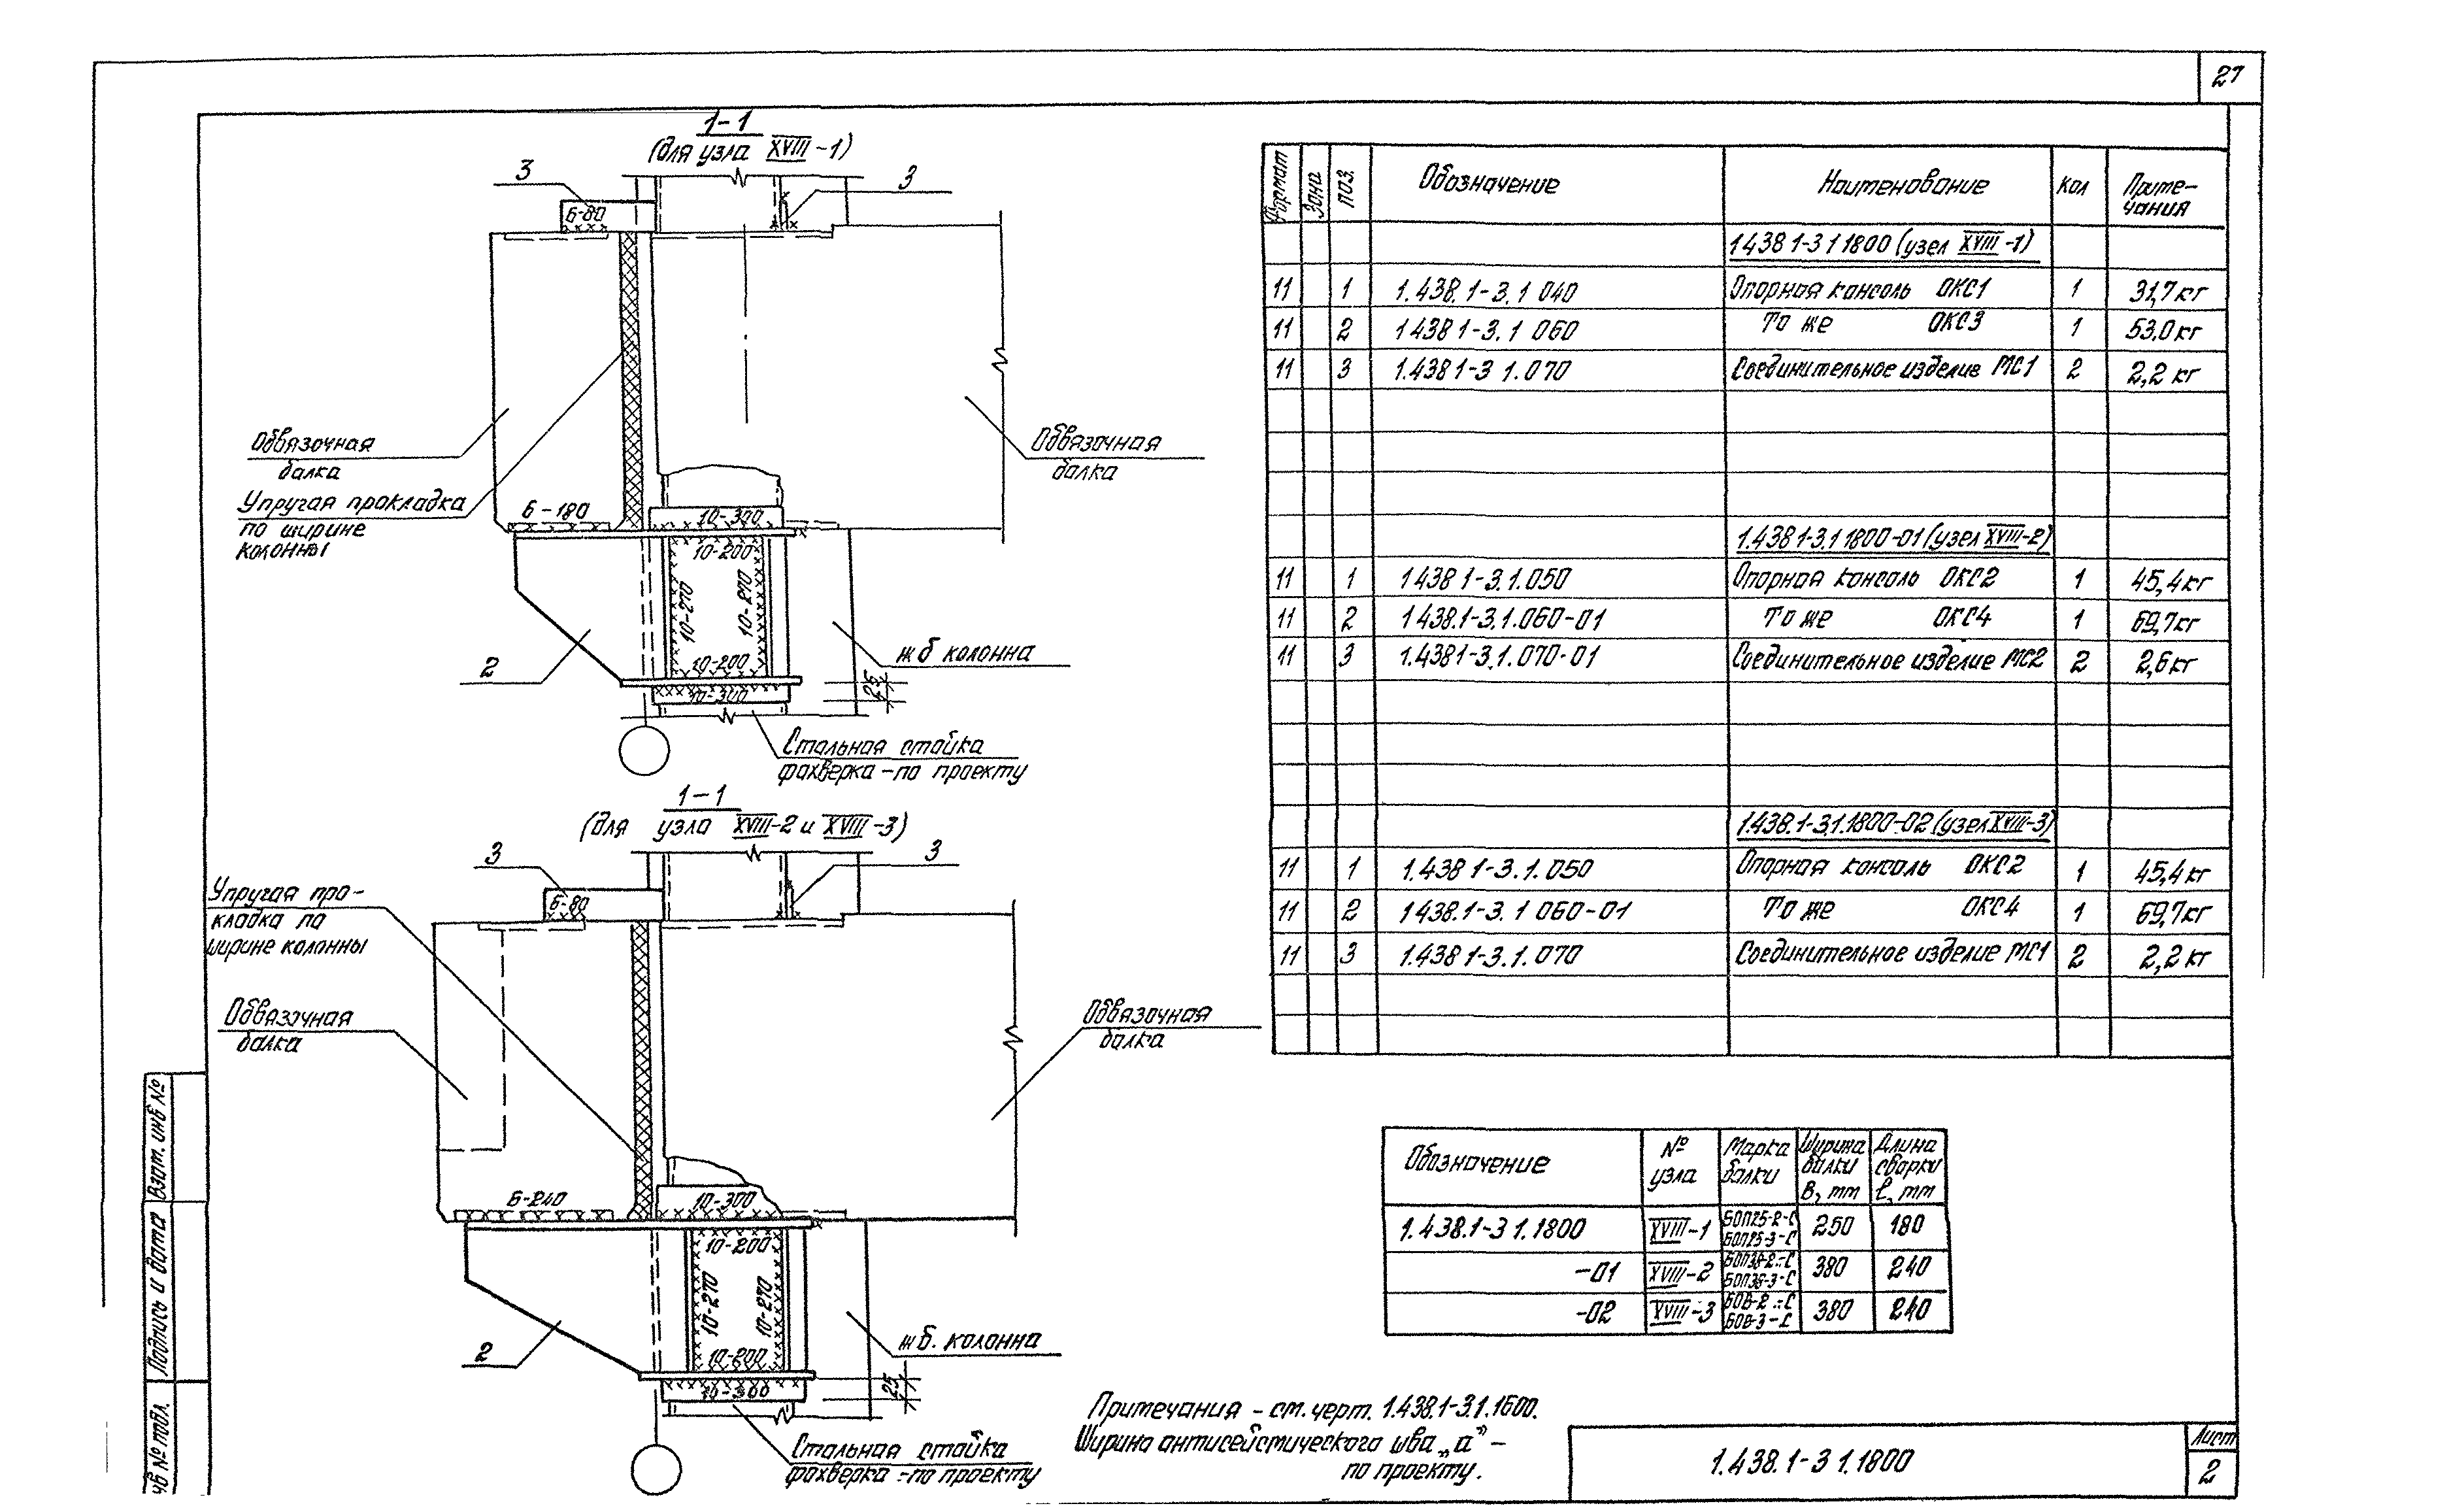 27
1-1
(для узла XVIII-1)
3
3
6-80
Обвязочная
балка
Упругая прокладка
по ширине
колонны
6-180
10-300
10-200
10-270
10-270
10-200
10-300
Обвязочная
балка
2
ж б колонна
25
Стальная стойка
фахверка - по проекту
1-1
(для узла XVIII-2 и XVIII-3)
3
3
6-80
Упругая про-
кладка по
ширине колонны
Обвязочная
балка
Обвязочная
балка
6-240
10-300
10-200
10-270
10-270
10-200
10-300
2
ж б. колонна
25
Стальная стойка
фахверка - по проекту
Формат Зона Поз. Обозначение Наименование Кол Приме-
чания
1438 1-3 1 1800 (узел XVIII-1)
11 1 1.438.1-3.1 040 Опорная консоль ОКС1 1 31,7 кг
11 2 1438 1-3.1 060 То же ОКС3 1 53,0 кг
11 3 1.438 1-3 1.070 Соединительное изделие МС1 2 2,2 кг
1.438 1-3.1 1800-01 (узел XVIII-2)
11 1 1438 1-3.1.050 Опорная консоль ОКС2 1 45,4 кг
11 2 1438.1-3.1.060-01 То же ОКС4 1 69,7 кг
11 3 1.4381-3.1.070-01 Соединительное изделие МС2 2 2,6 кг
1.438.1-3.1.1800-02 (узел XVIII-3)
11 1 1.438 1-3.1.050 Опорная консоль ОКС2 1 45,4 кг
11 2 1438.1-3.1 060-01 То же ОКС4 1 69,7 кг
11 3 1.438 1-3.1.070 Соединительное изделие МС1 2 2,2 кг
Обозначение № узла Марка балки Ширина балки В, мм Длина сварки ℓ, мм
1.438.1-3 1.1800 XVIII-1 БОП25-2-С БОП25-3-С 250 180
-01 XVIII-2 БОП38-2-С БОП38-3-С 380 240
-02 XVIII-3 БОВ-2-С БОВ-3-С 380 240
Примечания - см. черт. 1.438.1-3.1.1600.
Ширина антисейсмического шва „а" -
по проекту.
1.438.1-3 1.1800
Лист
2
Взам. инв №
Подпись и дата
№ подл.